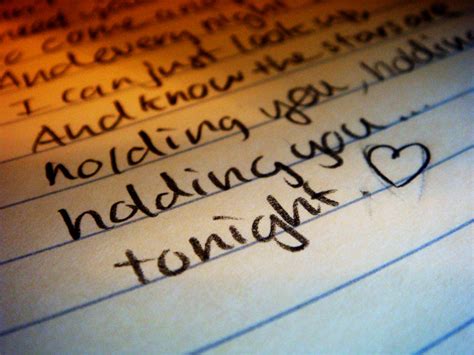 need you
to come and
And every night
I can just look up
And know the stars are
holding you, holding
holding you...
tonight. ♡